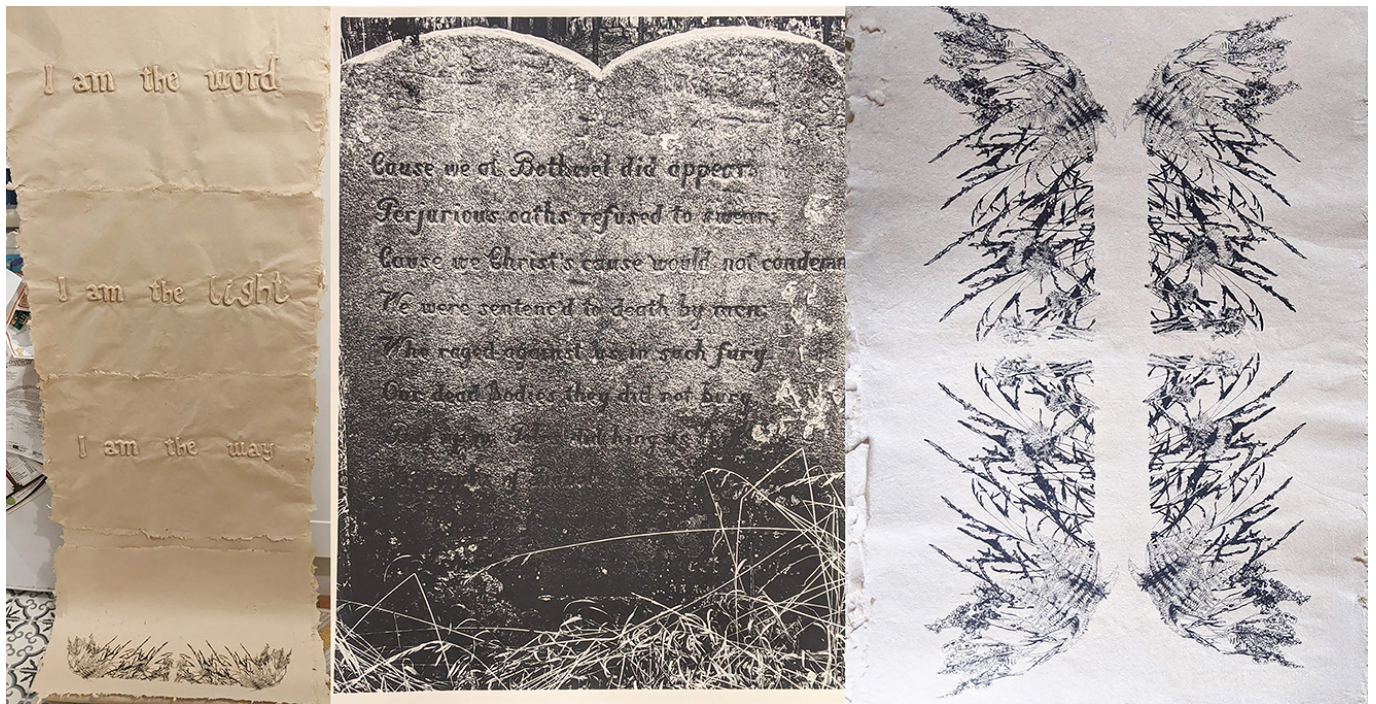 I am the word
I am the light
I am the way
Cause we at Bothwel did appear.
Perjurious oaths refused to swear;
Cause we Christ's cause would not condemn
We were sentenc'd to death by men:
Who raged against us in such fury
Our dead Bodies they did not bury